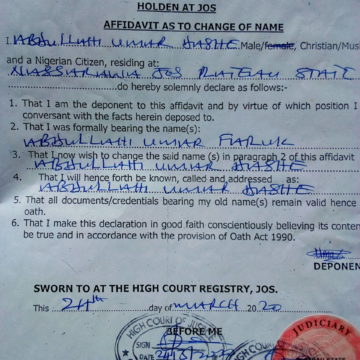 HOLDEN AT JOS
AFFIDAVIT AS TO CHANGE OF NAME
I, Abdullahi Umar Dashe Male/female, Christian/Mus
and a Nigerian Citizen, residing at:
Nassarawa Jos Plateau State
do hereby solemnly declare as follows:-
1. That I am the deponent to this affidavit and by virtue of which position I
conversant with the facts herein deposed to.
2. That I was formally bearing the name(s):
Abdullahi Umar Faruk
3. That I now wish to change the said name (s) in paragraph 2 of this affidavit
Abdullahi Umar Dashe
4. That I will hence forth be known, called and addressed as:
Abdullahi Umar Dashe
5. That all documents/credentials bearing my old name(s) remain valid hence
oath.
6. That I make this declaration in good faith conscientiously believing its conten
be true and in accordance with the provision of Oath Act 1990.
DEPONEN
SWORN TO AT THE HIGH COURT REGISTRY, JOS.
This 24th day of March 2020
BEFORE ME
HIGH COURT OF JUSTICE
SIGN
DATE
HIGH COURT OF JUSTICE
JUDICIARY